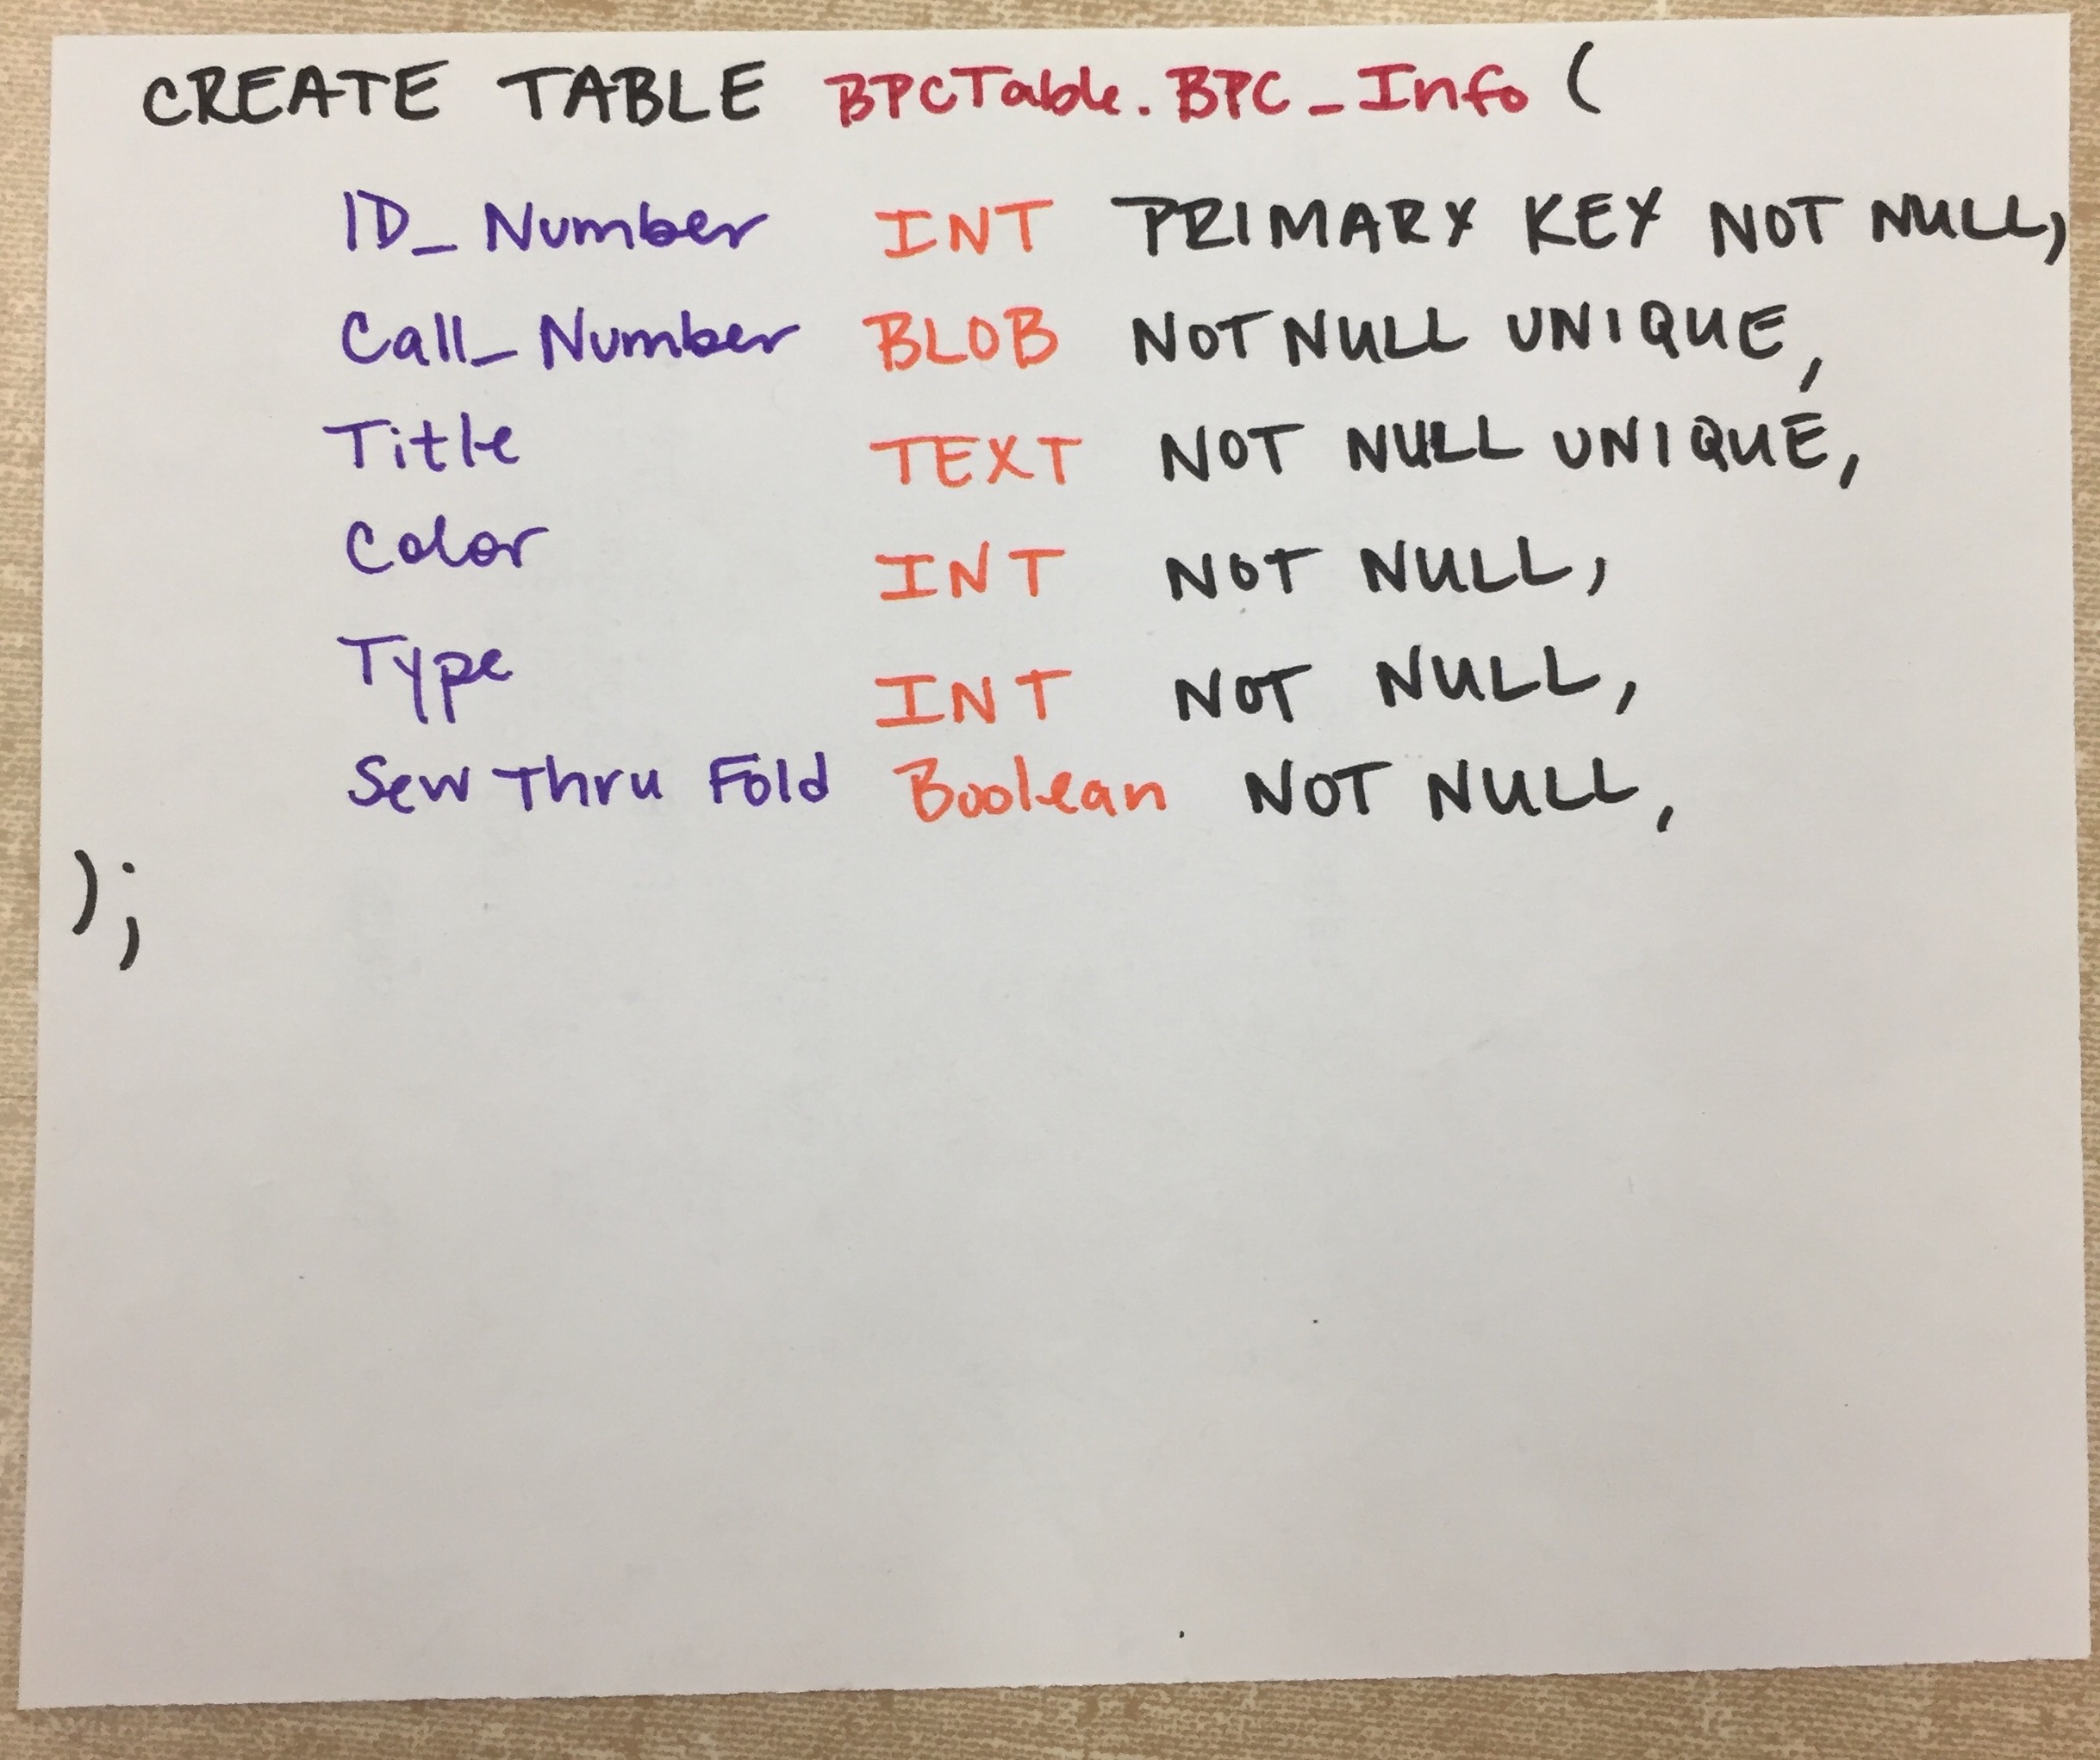 CREATE TABLE BPCTable.BPC_Info (
ID_Number INT PRIMARY KEY NOT NULL,
Call_Number BLOB NOT NULL UNIQUE,
Title TEXT NOT NULL UNIQUE,
Color INT NOT NULL,
Type INT NOT NULL,
Sew Thru Fold Boolean NOT NULL,
);